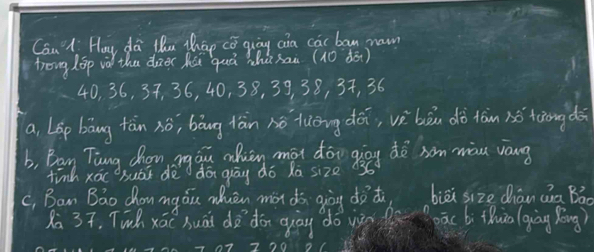 Câu 1: Huy đã thu thập cỡ giày của các bạn nam
trong lớp và thu được kết quả như sau (10 đôi)
40, 36, 37, 36, 40, 38, 39, 38, 37, 36
a, Lập bảng tần số, bảng tần số tương đối, vẽ biểu đồ tần số tương đối
b, Bạn Tùng chọn ngẫu nhiên một đôi giày để sơn màu vàng
tính xác suất để đôi giày đó là size 36
c, Bạn Bảo chọn ngẫu nhiên một đôi giày để đi, biết size chân của Bảo
là 37. Tính xác suất để đôi giày đó hoặc bị thừa (giày rộng)